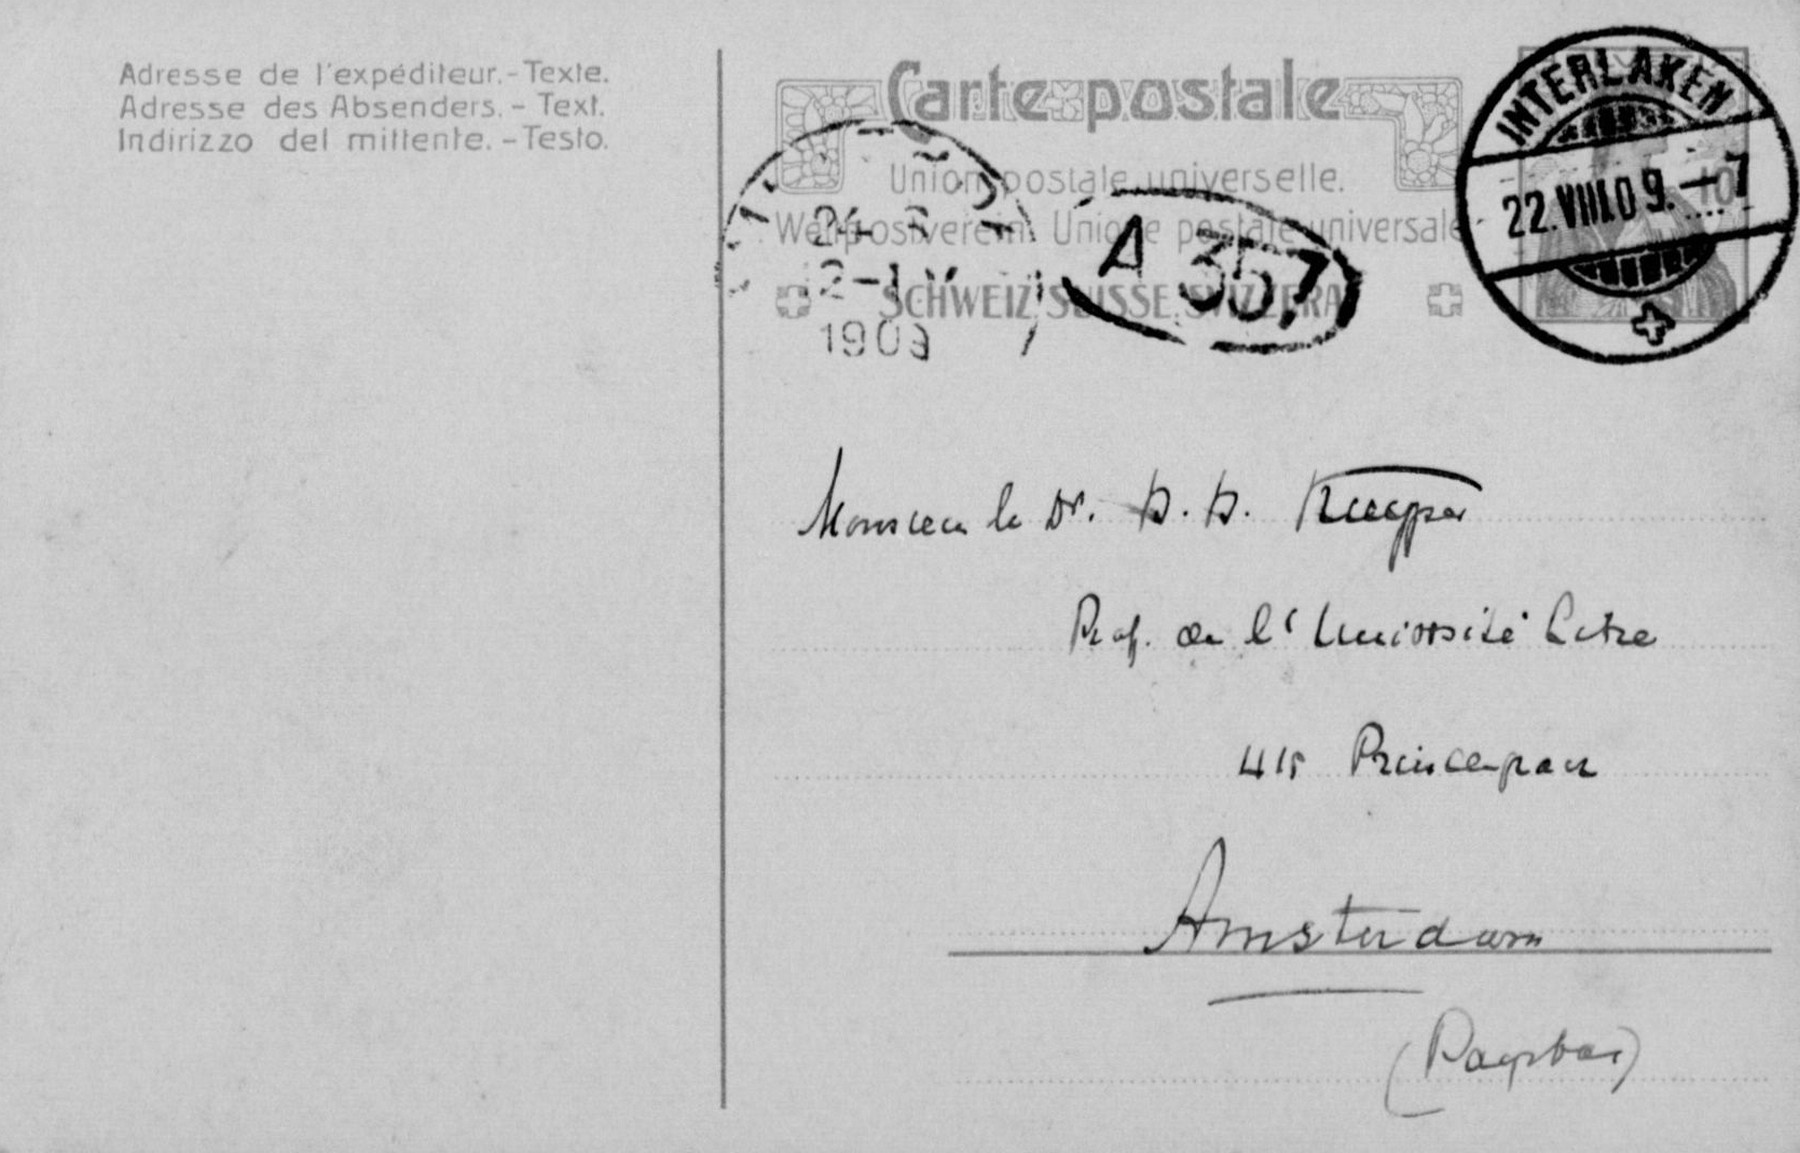 Adresse de l'expéditeur.-Texte.
Adresse des Absenders. - Text.
Indirizzo del mittente. - Testo.
Carte postale
Union postale universelle.
Weltpostverein. Unione postale universale
SCHWEIZ. SUISSE. SVIZZERA
10
INTERLAKEN
22.VIII.09.-7
24
1909
A 357
Monsieur le Dr.
Prof. de l'Université Libre
Amsterdam